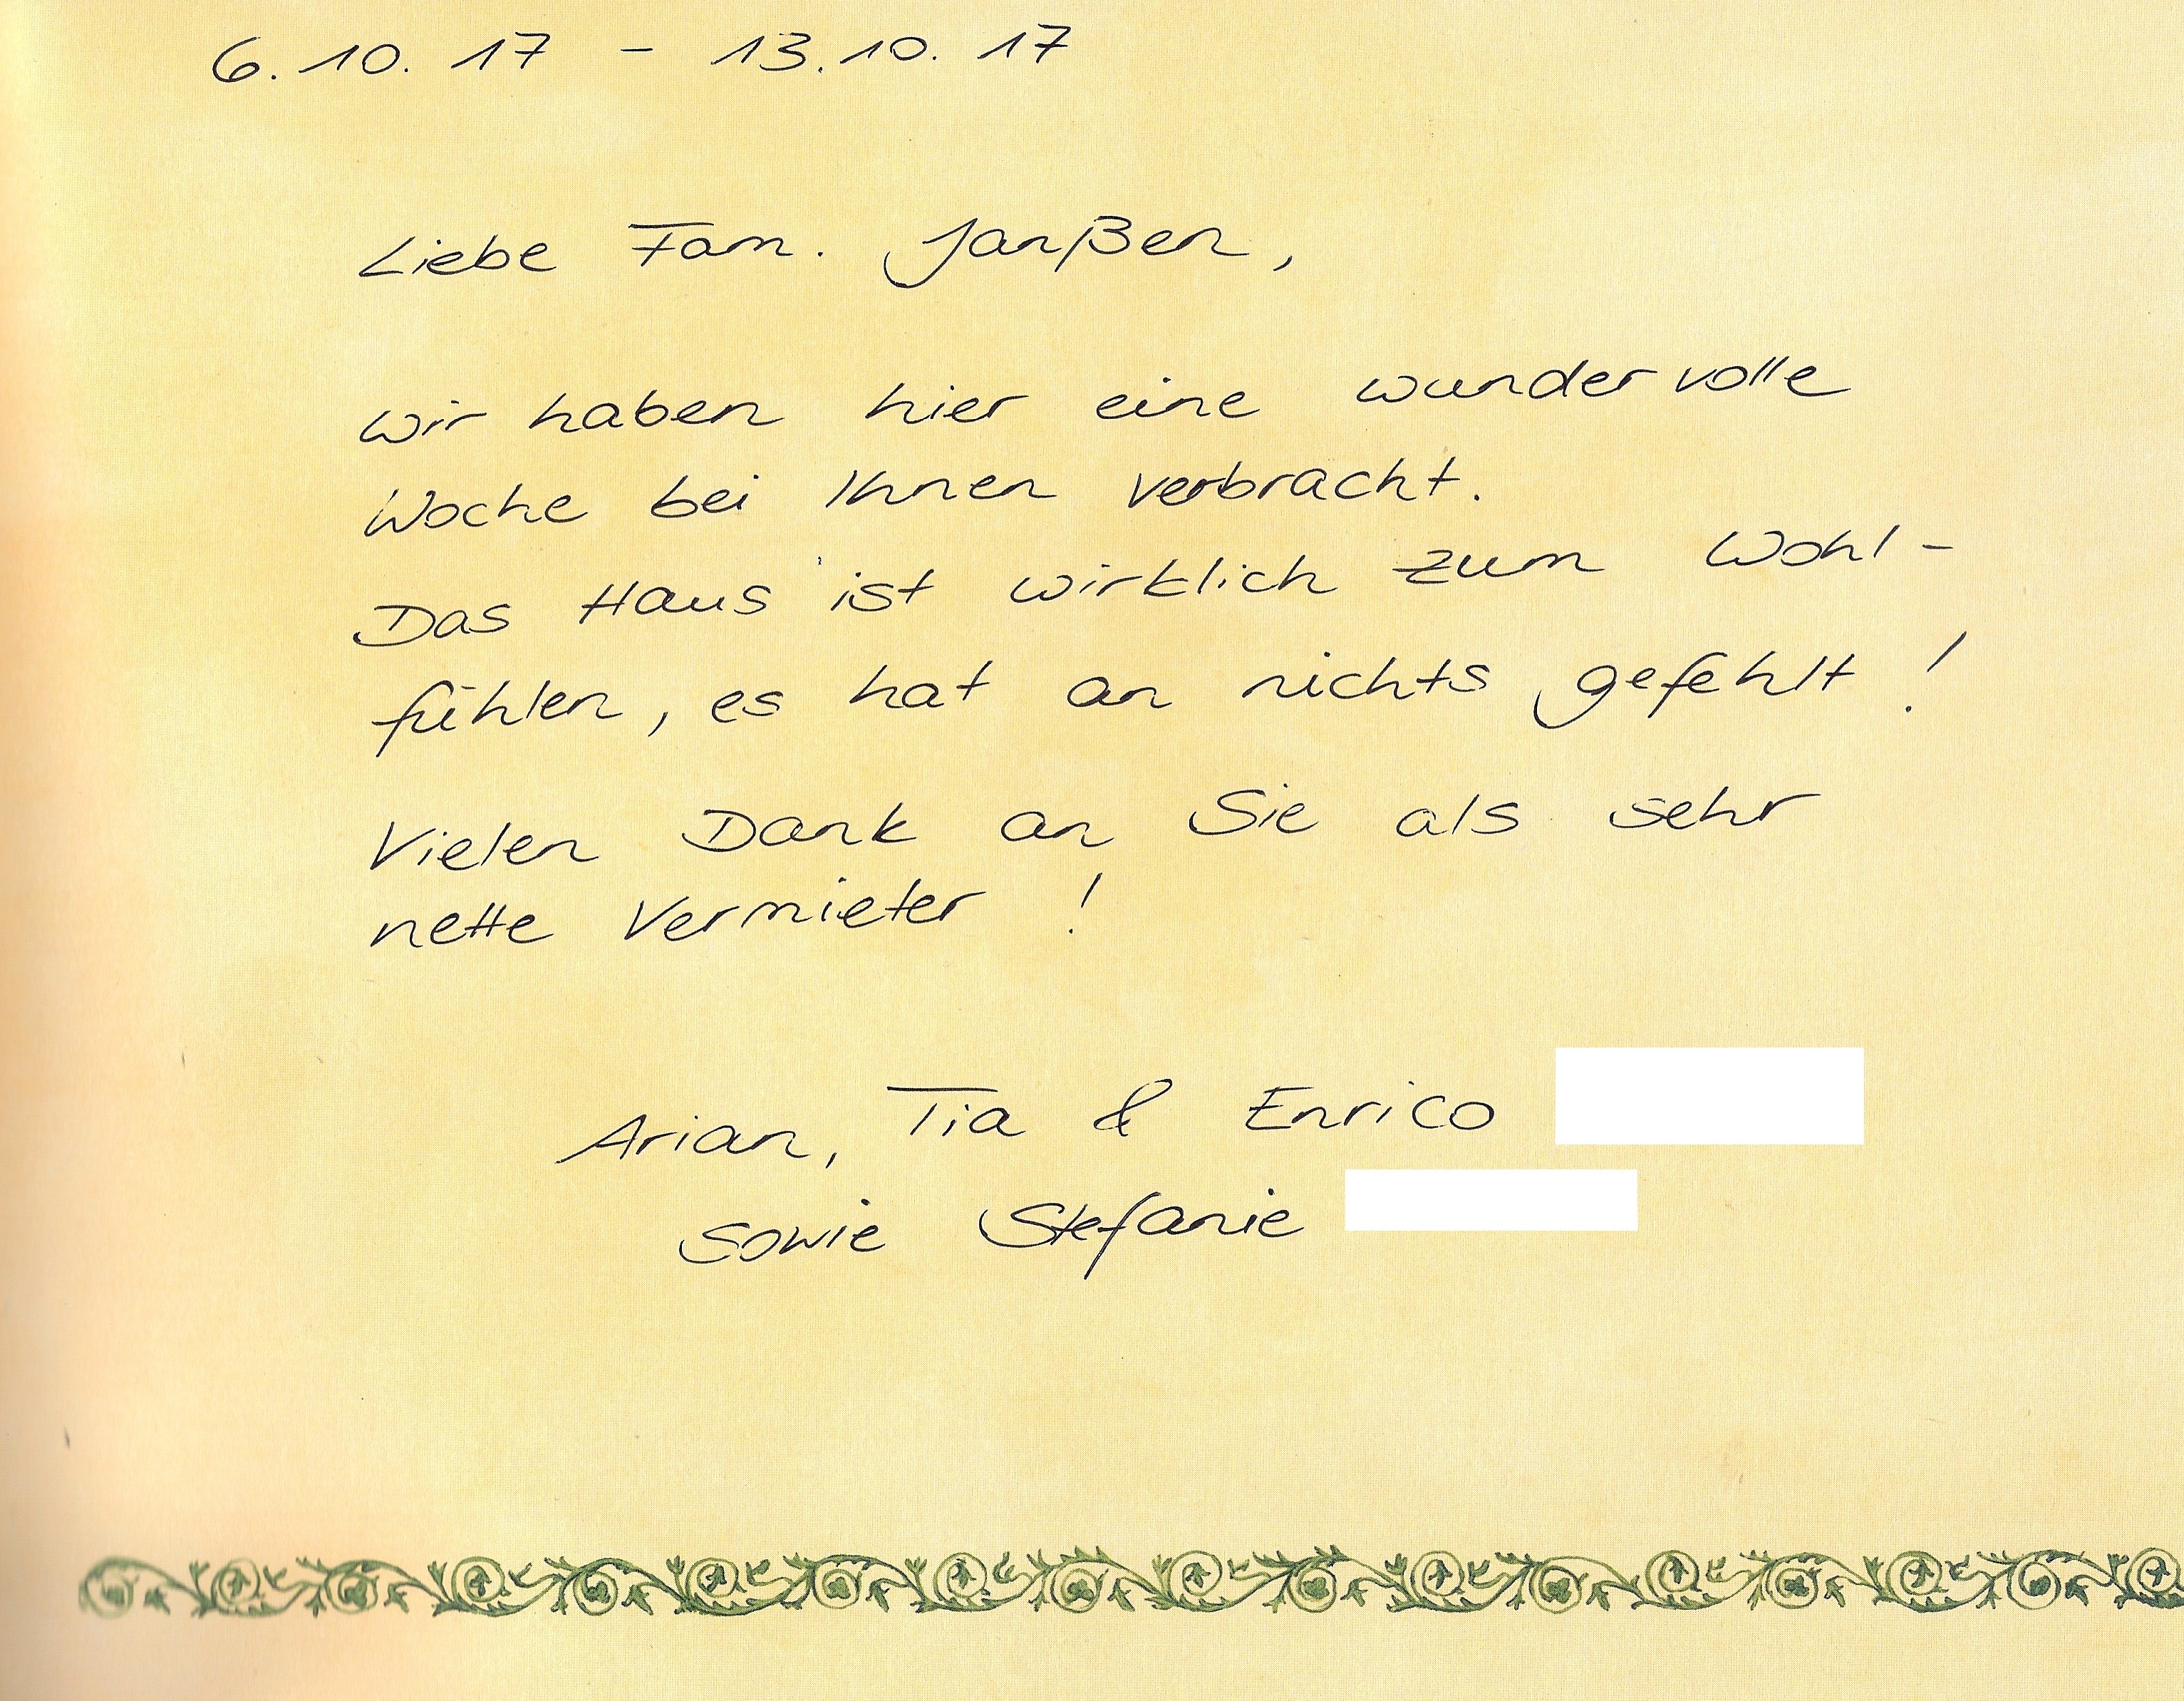 6.10.17 - 13.10.17
Liebe Fam. Janßen,
wir haben hier eine wundervolle
Woche bei Ihnen verbracht.
Das Haus ist wirklich zum Wohl-
fühlen, es hat an nichts gefehlt!
Vielen Dank an Sie als sehr
nette Vermieter!
Arian, Tia & Enrico
sowie Stefanie